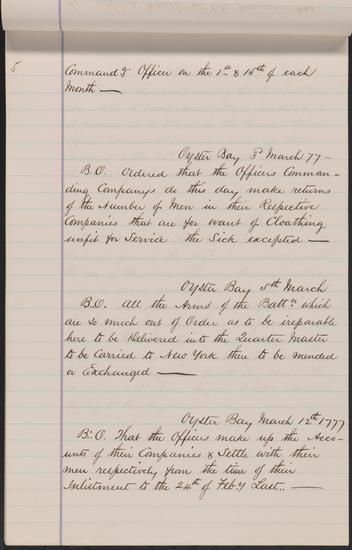 8
Command'g Officer on the 1st & 15th of each
Month —
Oyster Bay 3d March 77 —
B.O. Ordered that the Officers Comman-
ding Companys do this day make returns
of the Number of Men in their Respective
Companies that are for want of Cloathing
unfit for Service the Sick excepted —
Oyster Bay 5th March
B.O. All the Arms of the Battn which
are so much out of Order as to be ireparable
here to be Delivered into the Quarter Master
to be Carried to New York there to be mended
or Exchanged —
Oyster Bay March 12th 1777
B.O. That the Officers make up the Acco-
unts of their Companies & Settle with their
men respectively from the time of their
Inlistment to the 24th of Feb'y Last.. —